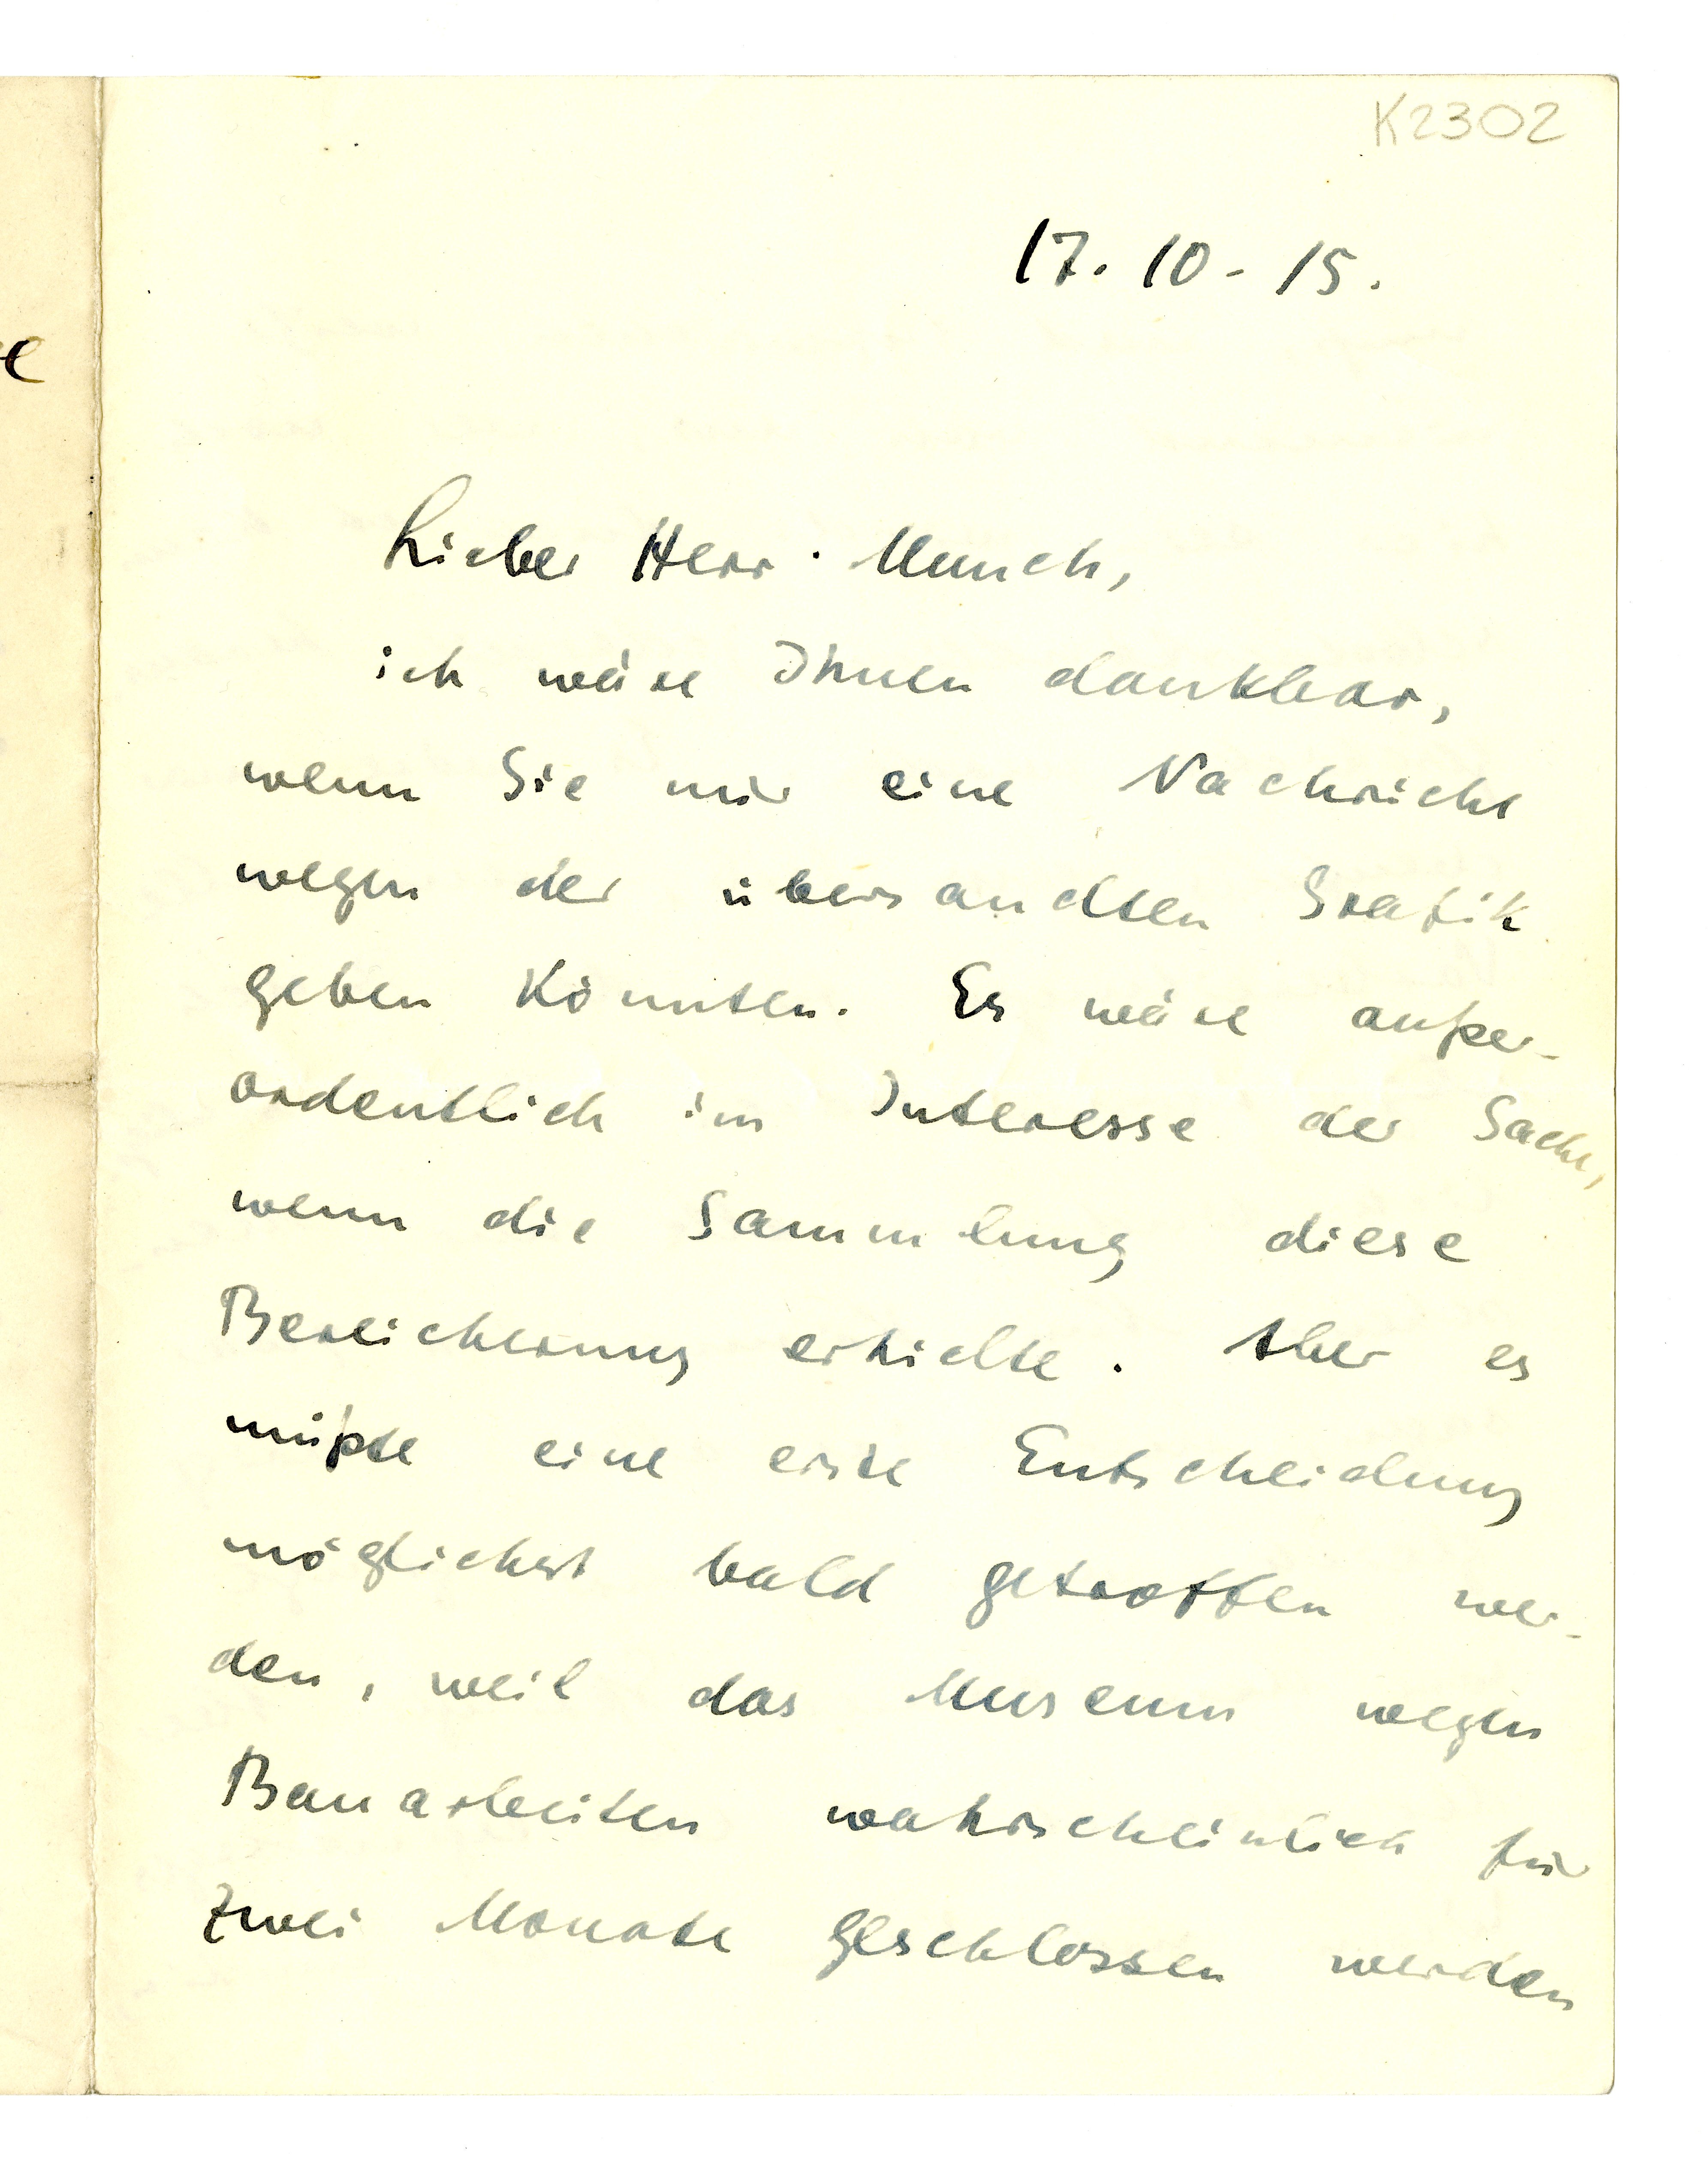 K2302
17. 10 - 15.
Lieber Herr Munch,
ich wäre Ihnen dankbar,
wenn Sie mir eine Nachricht
wegen der übersandten Grafik
geben könnten. Es wäre außer-
ordentlich im Interesse der Sache,
wenn die Sammlung diese
Bereicherung erhielte. Aber es
müßte eine erste Entscheidung
möglichst bald getroffen wer-
den, weil das Museum wegen
Bauarbeiten wahrscheinlich für
zwei Monate geschlossen werden